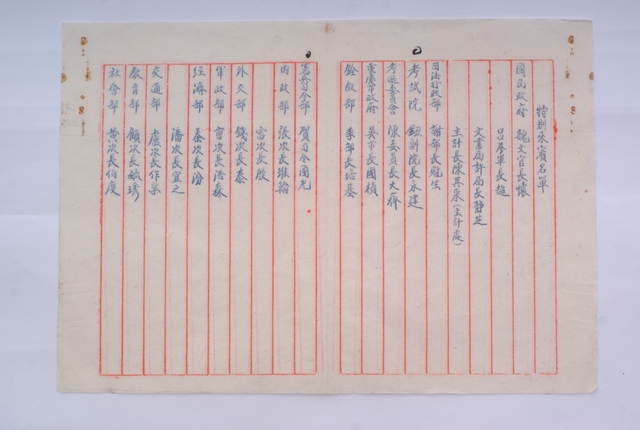 特別來賓名單
國民政府 魏文官長懷
呂參軍長超
文書局許局長靜芝
主計長陳其采(主計處)
司法行政部 謝部長冠生
考試院 鈕副院長永建
考選委員會 陳委員長大齊
重慶市政府 吳市長國楨
銓敘部 李部長培基
憲兵司令部 賀司令國光
內政部 張次長維翰
雷次長殷
外交部 錢次長泰
軍政部 曹次長浩森
經濟部 秦次長汾
潘次長宜之
交通部 盧次長作孚
教育部 顧次長毓琇
社會部 黃次長伯度